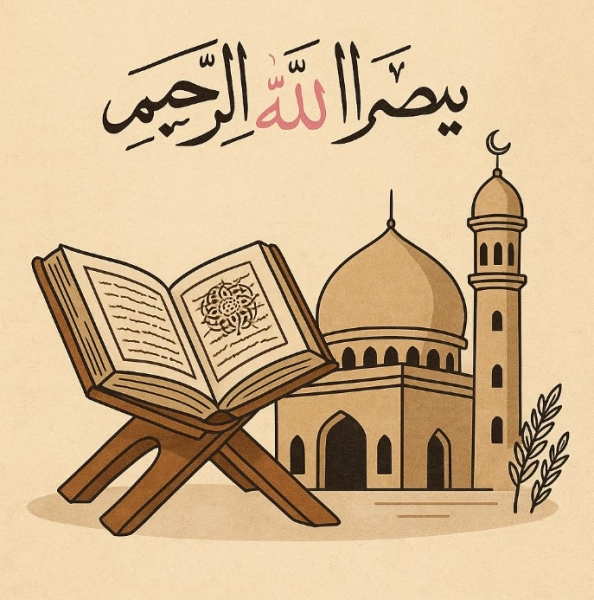 يصراا لله الرحيم